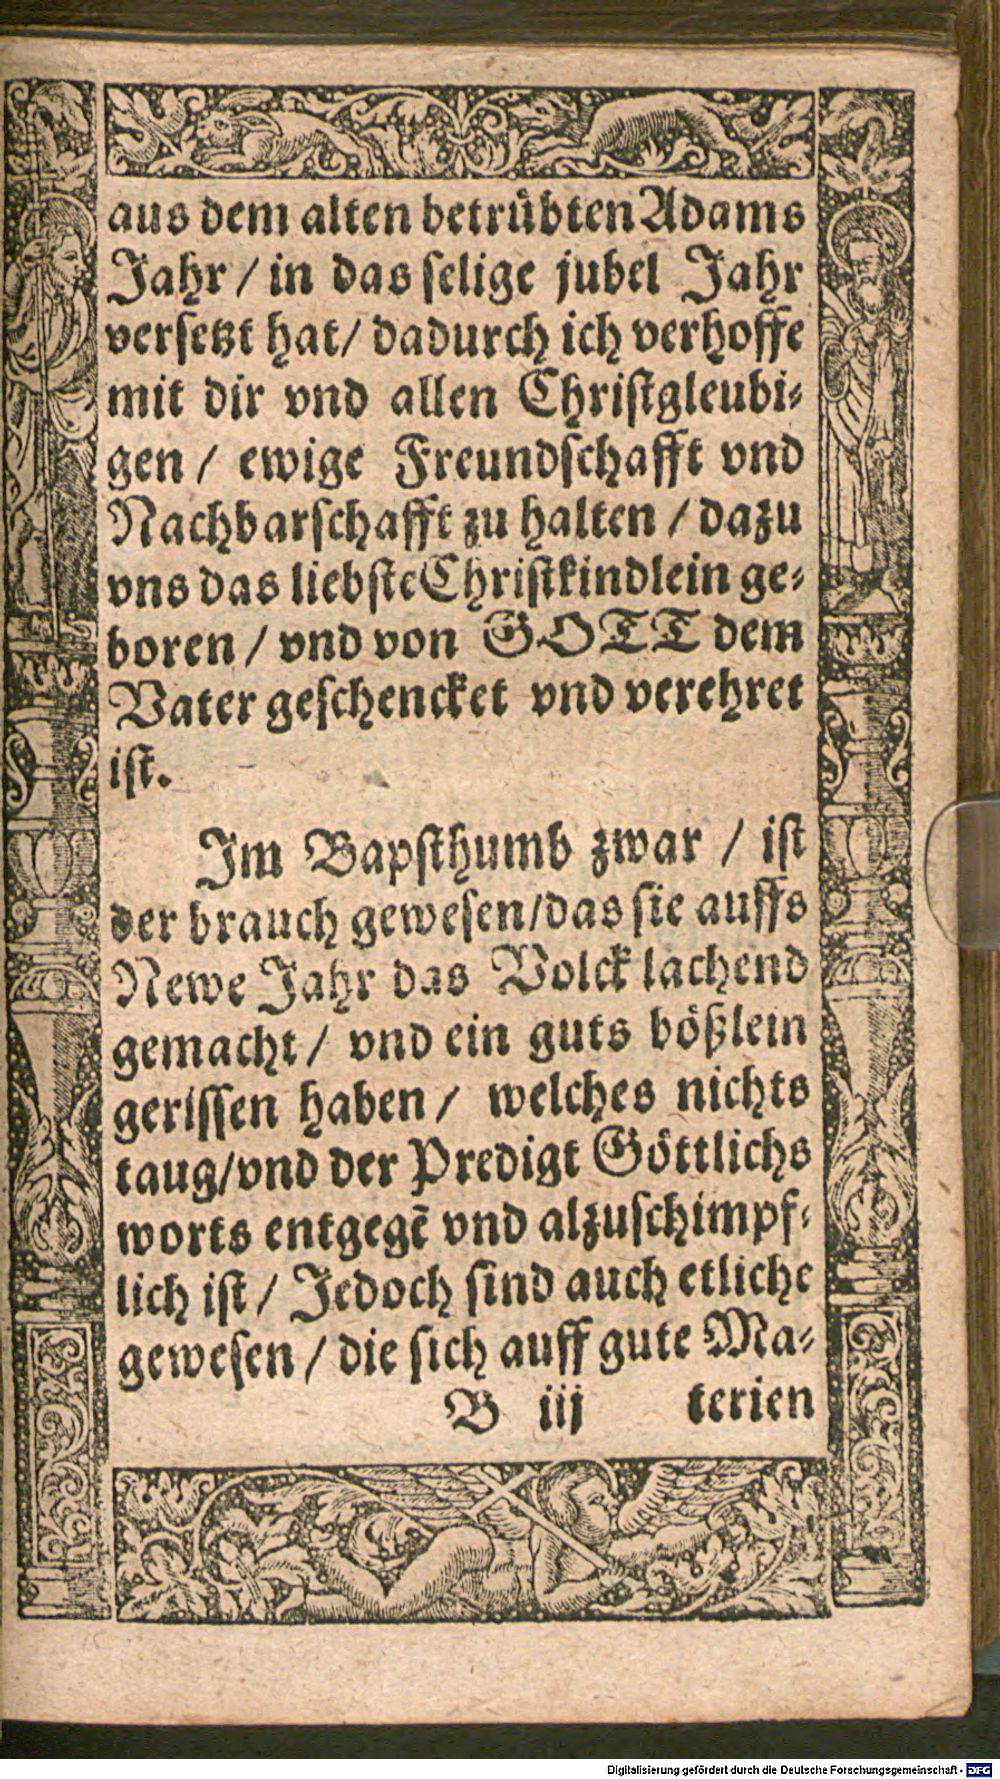 aus dem alten betrübten Adams
Jahr / in das selige jubel Jahr
versetzt hat / dadurch ich verhoffe
mit dir vnd allen Christgleubi-
gen / ewige Freundschafft vnd
Nachbarschafft zu halten / dazu
vns das liebste Christkindlein ge-
boren / vnd von GOTT dem
Vater geschencket vnd verehret
ist.
Im Bapsthumb zwar / ist
der brauch gewesen / das sie auffs
Newe Jahr das Volck lachend
gemacht / vnd ein guts bößlein
gerissen haben / welches nichts
taug / vnd der Predigt Göttlichs
worts entgegē vnd alzuschimpf-
lich ist / Jedoch sind auch etliche
gewesen / die sich auff gute Ma-
B iij terien
Digitalisierung gefördert durch die Deutsche Forschungsgemeinschaft - DFG